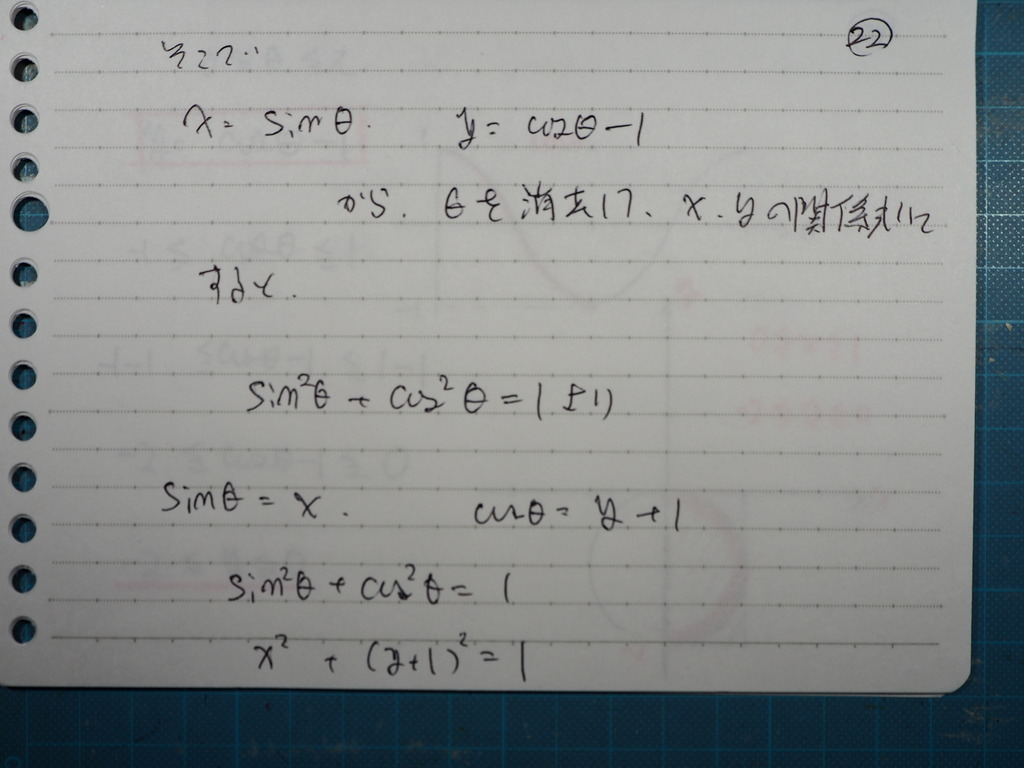 ㉒
そこで‥
x = sinθ. y = cosθ-1
から. θを消去して、x.yの関係式に
すると.
sin²θ + cos²θ = 1 より
sinθ = x. cosθ = y+1
sin²θ + cos²θ = 1
x² + (y+1)² = 1